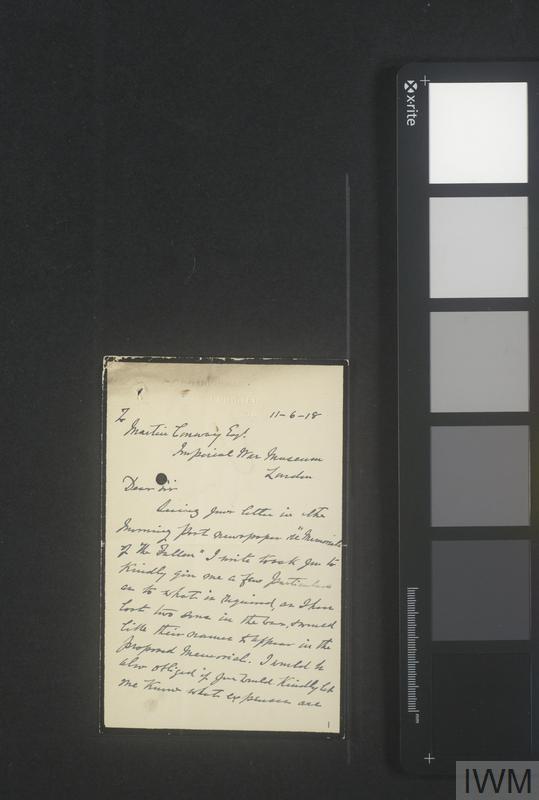 11-6-18
To
Martin Conway Esq.
Imperial War Museum
London
Dear Sir
Seeing your letter in the
Morning Post newspaper re "Memorials
of the Fallen" I write to ask you to
kindly give me a few particulars
as to what is required, as I have
lost two sons in the war, & would
like their names to appear in the
proposed Memorial. I would be
also obliged if you would kindly let
me know what expenses are
1
x-rite
mm
IWM